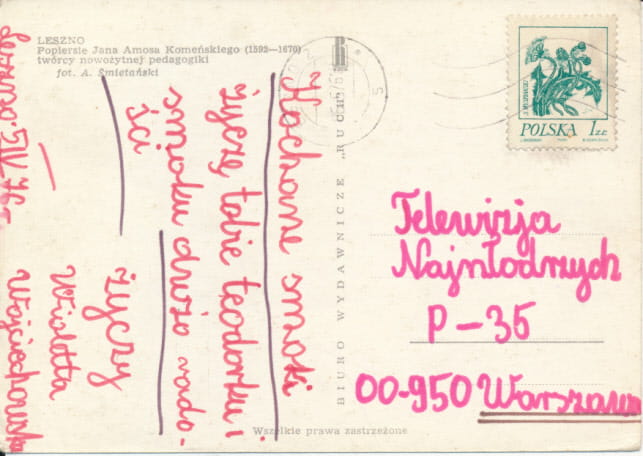 LESZNO
Popiersie Jana Amosa Komeńskiego (1592—1670)
twórcy nowożytnej pedagogiki
fot. A. Śmietański
Kochane smoki
życzę tobie teodorku i
smioku drużo rado-
ści
życzy
Wioletta
Wojciechowska
BIURO WYDAWNICZE „RUCH”
POLSKA 1 ZŁ
Telewizja
Najmłodrzych
P-35
00-950 Warszawa
Wszelkie prawa zastrzeżone